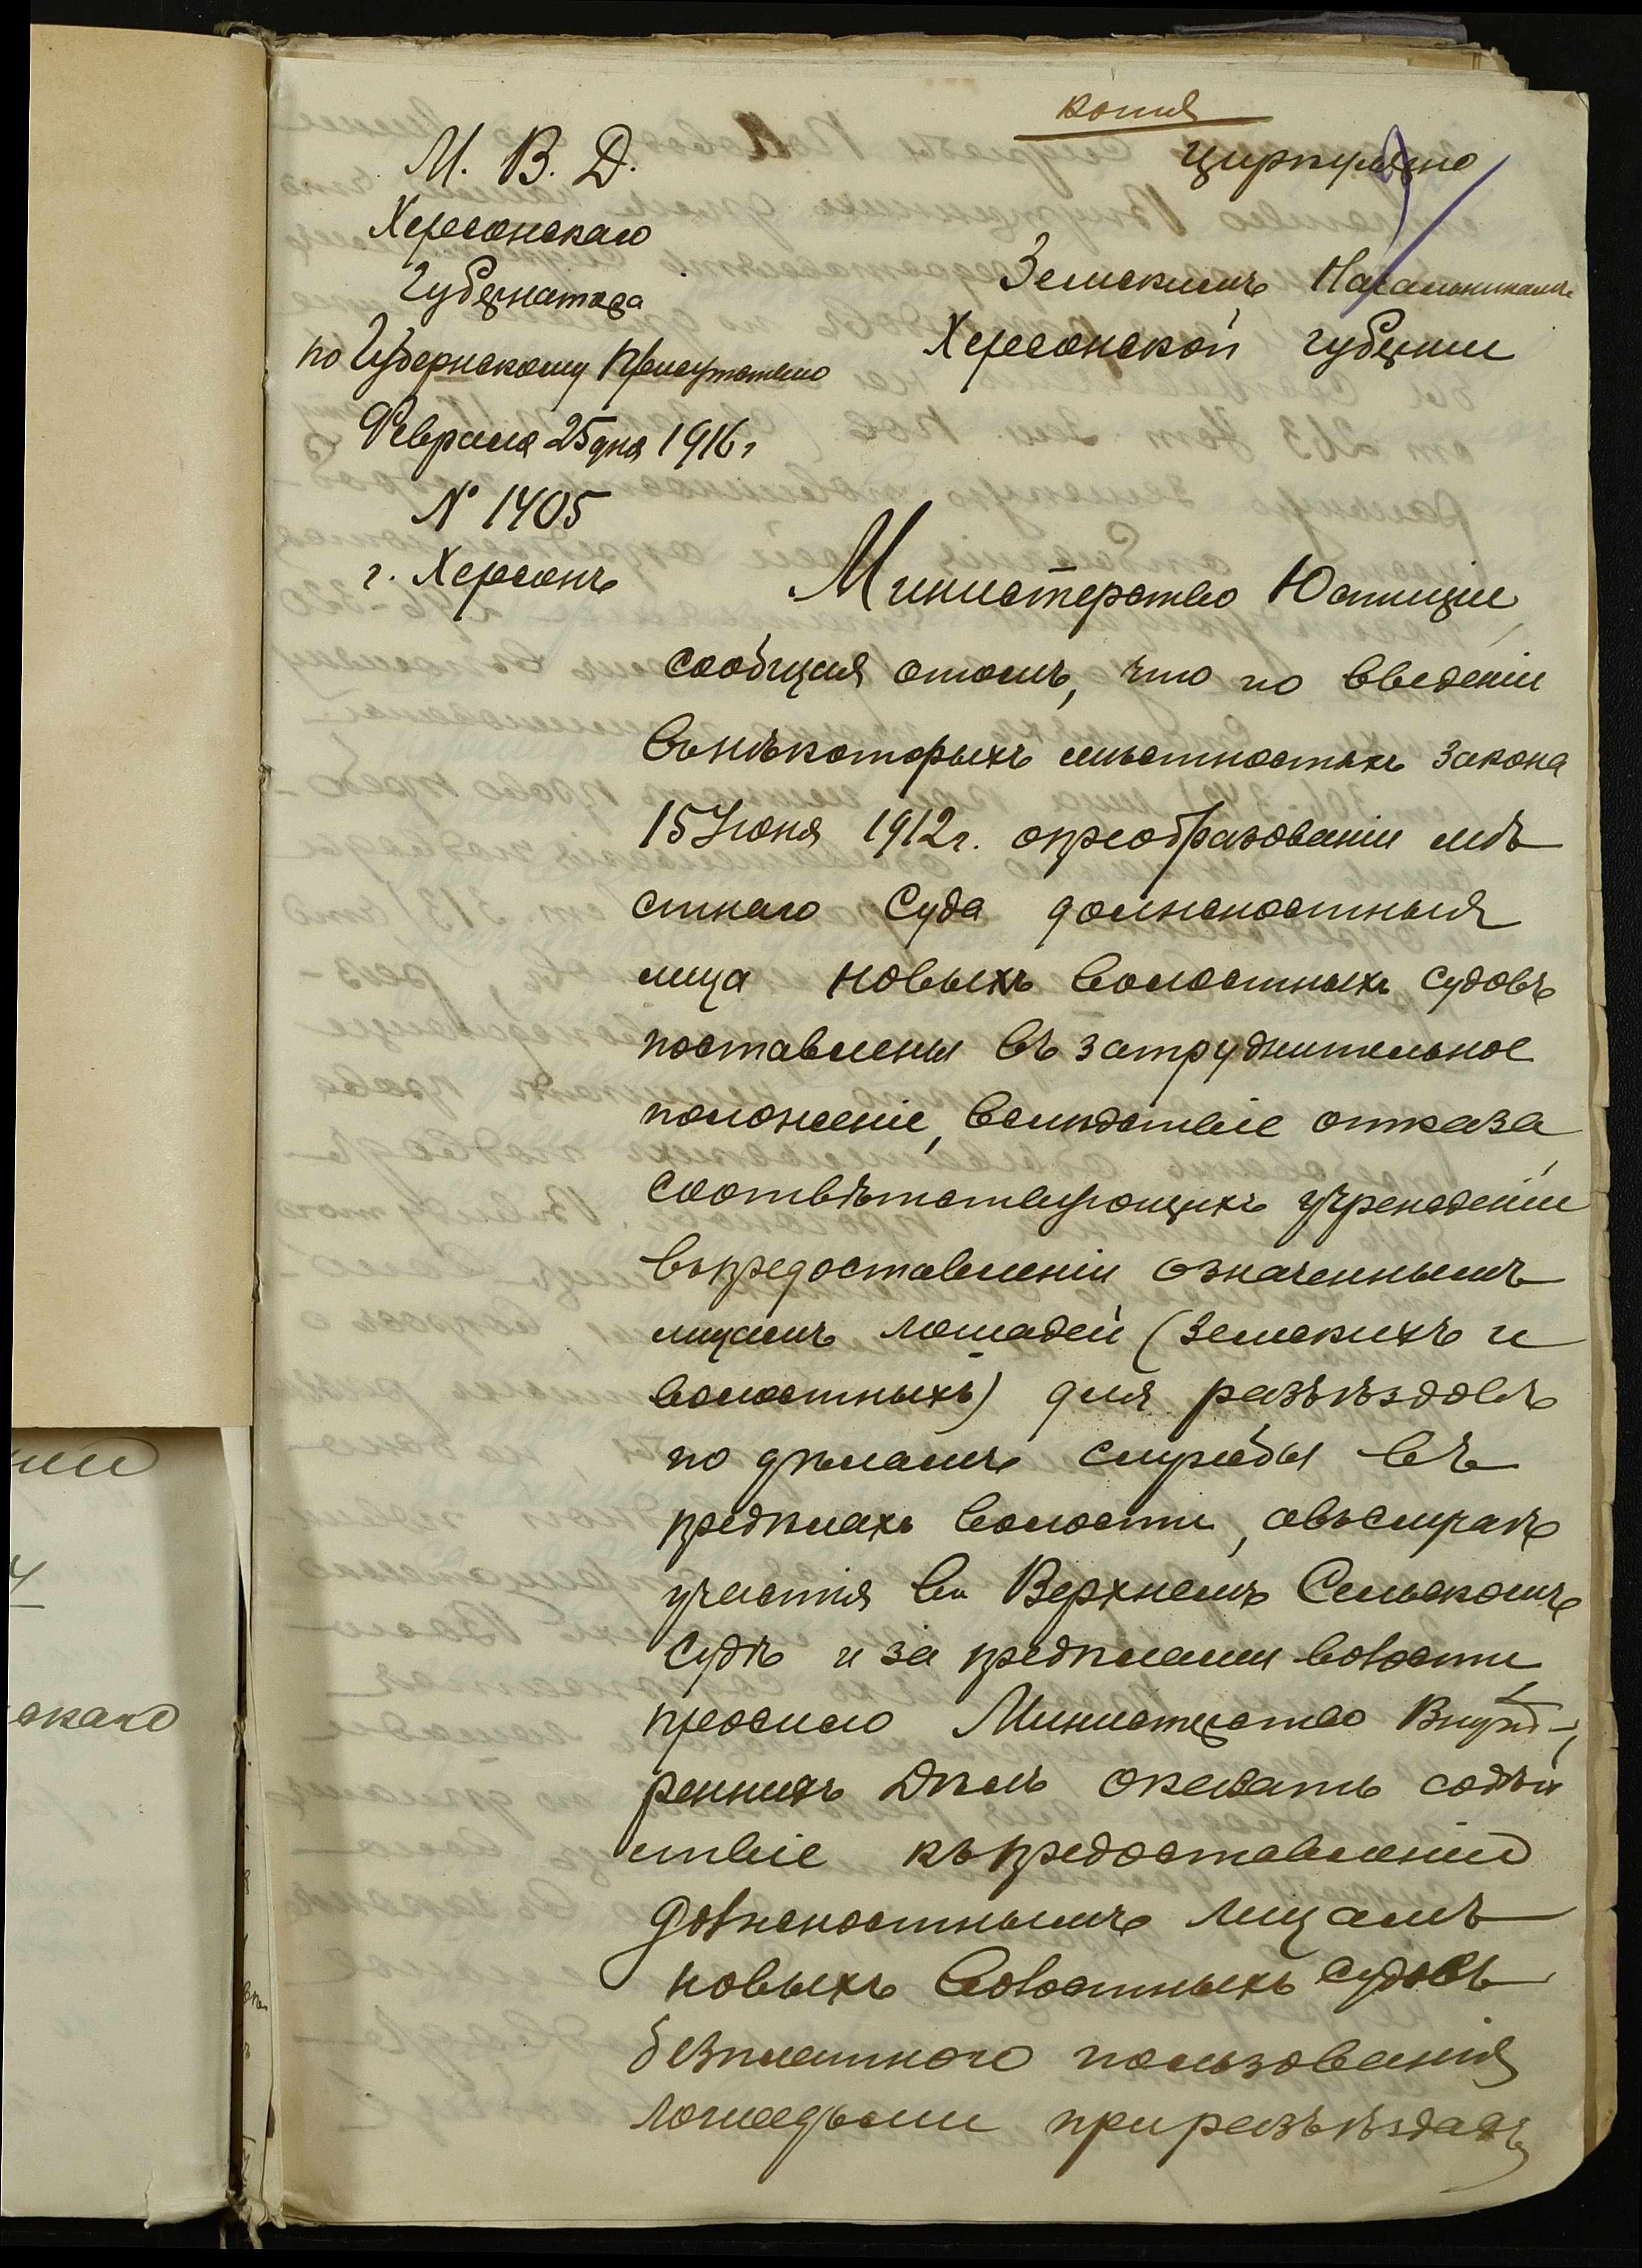 копія
Циркулярно
М. В. Д.
Херсонскаго
Губернатора
по Губернскому Присутствію
Февраля 25 дня 1916 г
№ 1405
г. Херсонъ
Земскимъ Начальникамъ
Херсонской губерніи
Министерство Юстиціи,
сообщая отомъ, что по введеніи
внѣкоторыхъ мѣстностяхъ закона
15 Іюня 1912 г. опреобразованіи мѣ
стнаго Суда должностныя
лица новыхъ волостныхъ судовъ
поставлены въ затруднительное
положеніе, вслѣдствіе отказа
соотвѣтствующихъ учрежденій
въпредоставленіи означеннымъ
лицамъ лошадей (земскихъ и
волостныхъ) для разъѣздовъ
по дѣламъ службы въ
предѣлахъ волости, авъслучаѣ
участія въ Верхнемъ Сельскомъ
Судѣ и за предѣлами волости
просило Министерство Внут-
реннихъ Дѣлъ оказать содѣй
ствіе къпредоставленію
должностнымъ лицамъ
новыхъ волостныхъ судовъ
безплатнаго пользованія
лошадьми приразъѣздахъ
нии
скаго